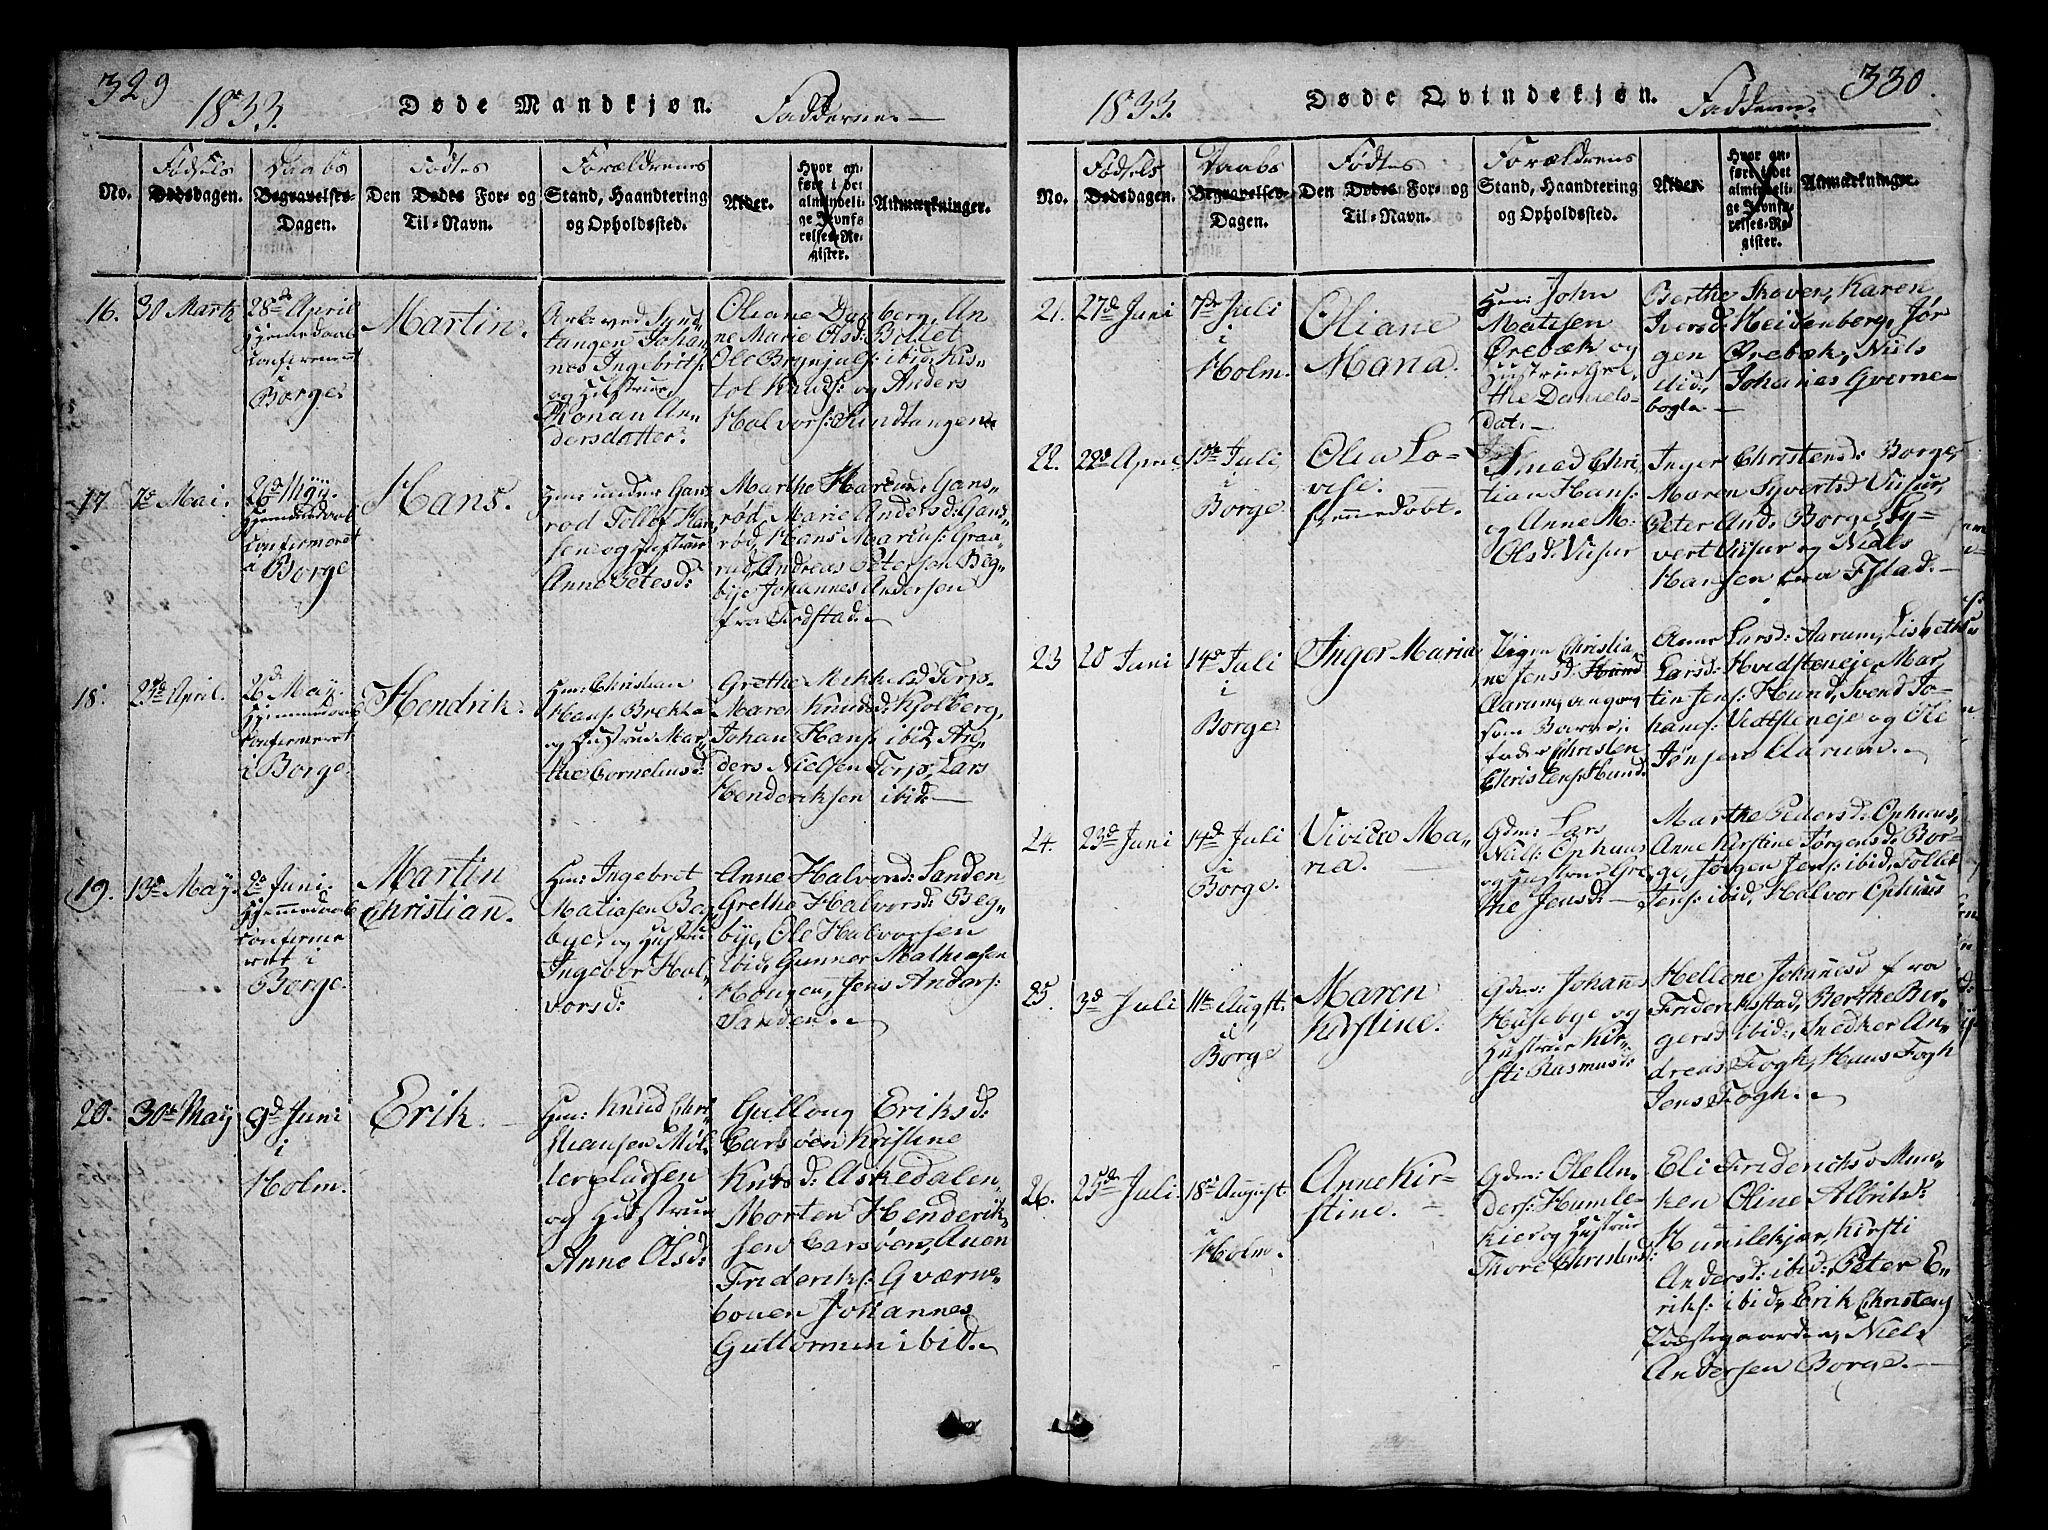 329
1833.
Døde Mandkjøn.
Fadderne.
Fødsels
Daabs
Fødtes
Forældrenes
No.
Dødsdagen.
Begravelses-
Dagen.
Den Dødes For- og
Til-Navn.
Stand, Haandtering
og Opholdssted.
Alder.
Hvor an-
ført i det
almindeli-
ge Jevnfø-
relses-Re-
gister.
Anmærkninger.
16.
30 Martz
28de April
hjemmedøbt
confirmeret
Borge
Martin.
Arb: ved Sun-
tangen Johan-
nes Ingebrits:
og Hustrue
Ronau An-
dersdatter.
Oliane Danberg, An-
ne Marie Olsd: Bollet
Ole Brynjuls: ibid: Kis-
tol Knuds: og Anders
Halvors: Sundtangen
17.
7de Mai.
26d May.
Hjemmedøbt
Confirmeret
i Borge
Hans.
Hm: under Gans
rød Tollef Han
sen og Hustrue
Anne Peters d:
Marthe Hansd: Gans-
rød, Marie Andersd: Gans-
rød, Hans Marius: Graa-
rud, Andreas Petersen Beg-
bye Johannes Andersen
fra Fredstad.
18.
25de April.
26d May.
Hjemmedøbt
Confirmeret
i Borge.
Hendrik.
Hm: Christian
Hans: Brekke
og Hustrue Mar-
the Corneliusd:
Grethe Mikkelsd Torp.
Maren Knudsd: Kjølberg,
Johan Hans: ibid, An-
ders Nielsen Torp, Lars
Henderiksen ibid
19.
13de May.
2de Juni.
Hjemmedøbt
Confirme
ret i
Borge.
Martin
Christian.
Hm: Ingebret
Matiasen Beg
bye, og Hustru
Ingebor Hal-
vorsd:
Anne Halvorsd: Sanden
Grethe Halvorsd: Beg-
bye, Ole Halvorsen
ibid, Gunner Mathiasen
Hougen, Jens Anders:
Sanden.
20.
30te May
9d Juni
i
Holm.
Erik.
Hm: Knud Chri
stiansen Møl-
lerpladsen
og Hustrue
Anne Olsd:
Gullaug Eriksd:
Carsøen Kristine
Knudsd: Askedalen,
Morten Henderik-
sen Carsøen, Anon
Frideriks: Gværne-
bouen Johannes
Guttormen ibid.
330.
1833.
Døde Qvindekjøn.
Fadderne.
Fødsels
Daabs
Fødtes
Forældrens
No.
Dødsdagen.
Begravelses-
Dagen.
Den Dødes For- og
Til-Navn.
Stand, Haandtering
og Opholdssted.
Alder.
Hvor an-
ført i det
almindeli-
ge Jevnfø-
relses-Re-
gister.
Anmærkninger.
21.
27de Juni
7de Juli
i
Holm.
Oliane
Maria.
Hm: John
Matisen
Ørebæk og
Hustrue Gre-
the Daniels-
dat.
Berthe Skoven, Karen
Iversd: Heidenberg, Jør
gen Ørebæk, Niels
ibid, Johanes Gverne-
bogta.
22.
22de April
15de Juli
i
Borge
Olea Lo-
vise.
hjemmedøbt.
Smed Chri,
tian Hans:
og Anne M:
Olsd: Viisur
Inger Christensd: Borge,
Maren Syvertsd Viisur,
Peter And: Borge, Sy-
vert Viisur og Niels
Hansen fra F.stad.
23
20 Juni
14de Juli
i
Borge
Inger Maria
Pigen Christia-
ne Jensd: Hund
Aarum, angav
som Barne-
fader Christen
Christens: Hund.
Anne Larsd: Aarum, Lisbethe
Larsd: Hvidsteneje, Mar-
tin Jens: Hund, Svend Jo-
hans: Vidsteneje og Ole
Jensen Aarum.
24.
23d Juni
14d Juli
i
Borge.
Vivica Ma-
ria.
Gdm: Lars
Niels: Ophuus
og Hustrue Gre-
the Jensd:
Marthe Pedersd: Ophuus,
Anne Kirstine Jørgensd: Bor-
ge, Jørgen Jens: ibid, Tollef
Jens: ibid, Halvor Ophuus
25.
3d Juli
11te Augst.
i
Borge
Maren
Kirstine.
Gdm: Johans
Husebye og
Hustrue Kir-
sti Rasmusd:
Hellene Johannisd fra
Friderikstad, Berthe Ber-
gersd ibid:, Snedker An-
dreas Fogh, Hans Fogh
Jens Fogh.
26.
25de Juli.
18de August.
i
Holm.
Anne Kir-
stine.
Gdm: Ole An-
ders: Humle-
kier og Hustrue
Thore Christensd:
Eli Fridericksd Mun-
ken Oline Albriksd:
Humlekjær, Kirsti
Andersd: ibid: Peter E-
riks: ibid, Erik Christens
Præstegaarden, Niels
Andersen Borge.